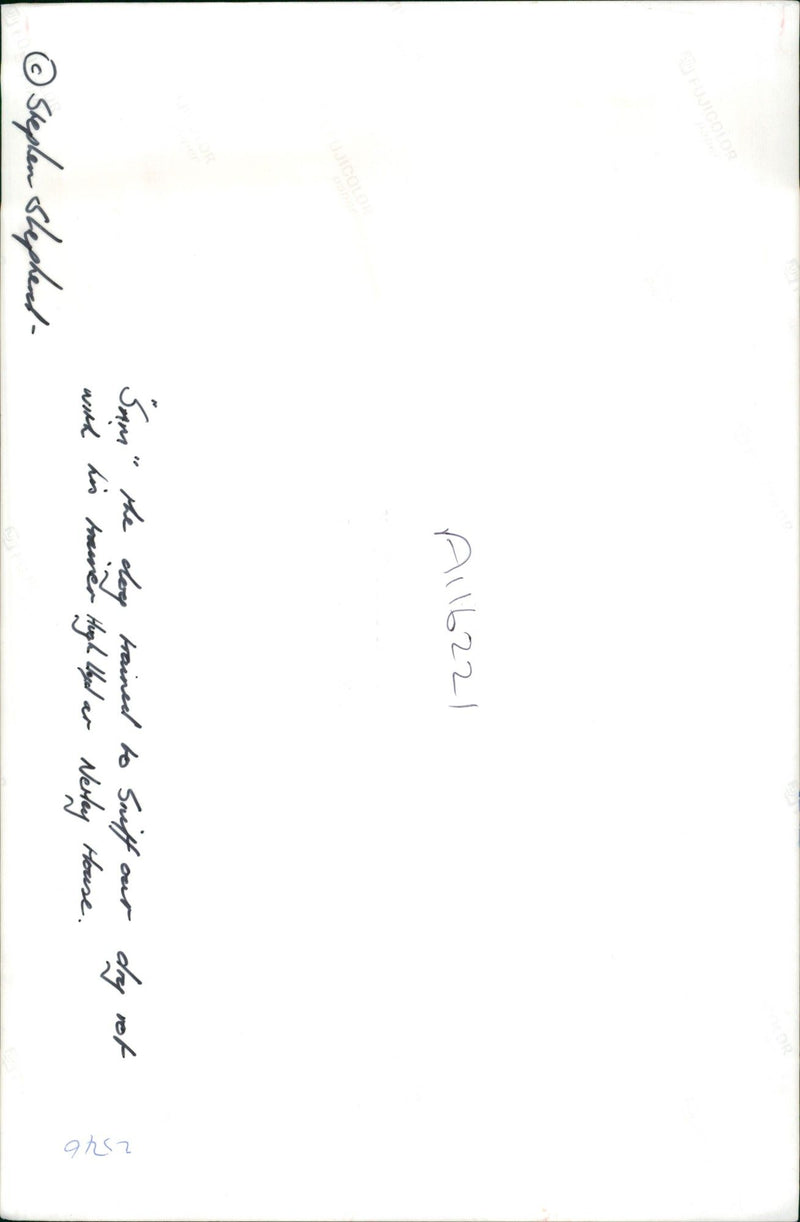 © Stephen Shepherd-
"Sam" the dog trained to Sniff out dry rot
with his trainer Hugh at Netley House.
A116221
FUJICOLOR
FUJICOLOR